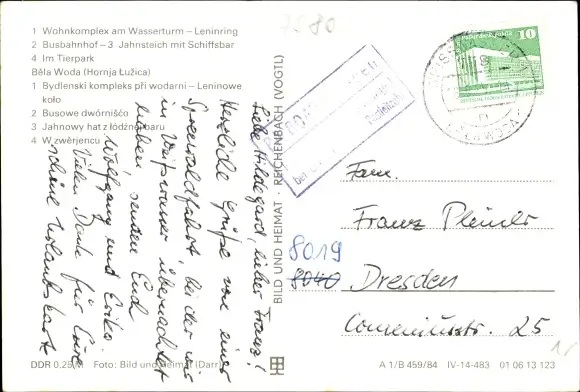 7580
1 Wohnkomplex am Wasserturm – Leninring
2 Busbahnhof – 3 Jahnsteich mit Schiffsbar
4 Im Tierpark
Běła Woda (Hornja Łužica)
1 Bydlenski kompleks při wodarni – Leninowe
koło
2 Busowe dwórnišćo
3 Jahnowy hat z łódźnej baru
4 W zwěrjencu
Liebe Hildegard, lieber Franz!
Herzliche Grüße von einer
Spreewaldfahrt, bei der wir
in Weißwasser übernachtet
haben, senden Euch
Wolfgang und Erika
Vielen Dank für Eure
schöne Urlaubskarte
BILD UND HEIMAT · REICHENBACH (VOGTL)
10
Fam.
Franz
8019
8040 Dresden
Comeniusstr. 25
DDR 0,25 M Foto: Bild und Heimat (Darr)
A 1/B 459/84 IV-14-483 01 06 13 123